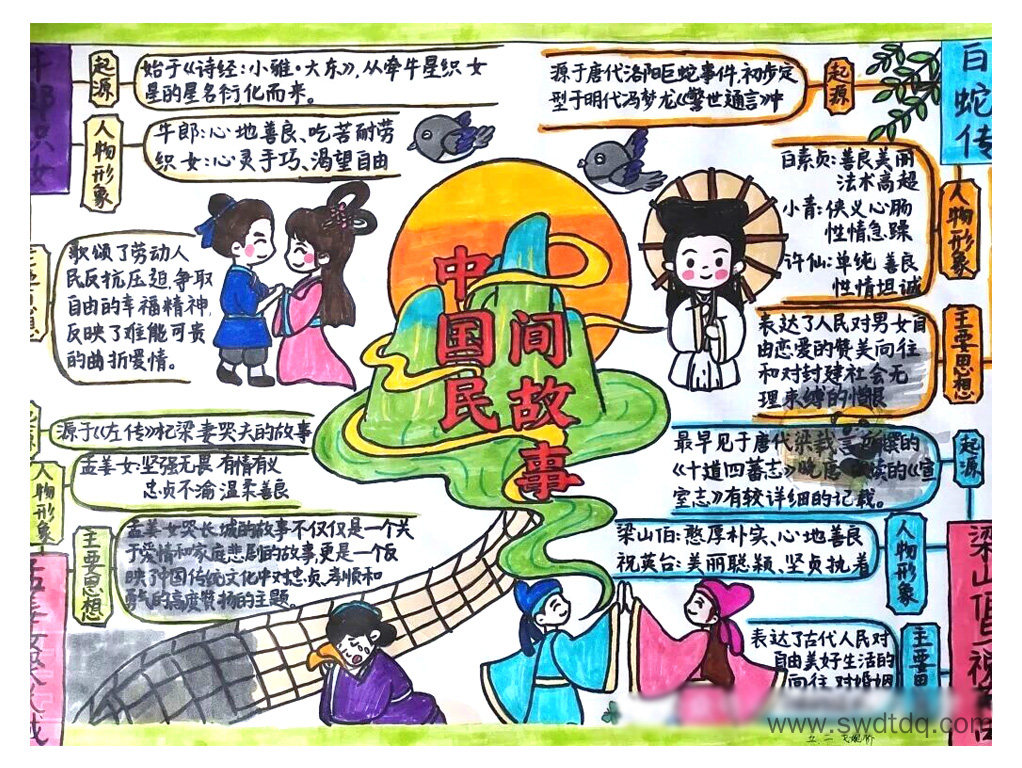 牛郎织女
起源
始于《诗经:小雅·大东》,从牵牛星织女
星的星名衍化而来。
人物形象
牛郎:心地善良、吃苦耐劳
织女:心灵手巧、渴望自由
主要思想
歌颂了劳动人
民反抗压迫,争取
自由的幸福精神,
反映了难能可贵
的曲折爱情。
白蛇传
起源
源于唐代洛阳巨蛇事件,初步定
型于明代冯梦龙《警世通言》中
人物形象
白素贞:善良美丽
法术高超
小青:侠义心肠
性情急躁
许仙:单纯善良
性情坦诚
主要思想
表达了人民对男女自
由恋爱的赞美向往
和对封建社会无
理束缚的憎恨
中国民
间故事
源于《左传》杞梁妻哭夫的故事
人物形象
孟姜女:坚强无畏有情有义
忠贞不渝温柔善良
主要思想
孟姜女哭长城的故事不仅仅是一个关
于爱情和家庭悲剧的故事,更是一个反
映了中国传统文化中对忠贞、孝顺和
勇气的高度赞扬的主题。
起源
最早见于唐代梁载言所撰的
《十道四蕃志》晚唐 续的《宣
室志》有较详细的记载。
梁山伯祝
人物形象
梁山伯:憨厚朴实、心地善良
祝英台:美丽聪颖、坚贞执着
主要思
表达了古代人民对
自由美好生活的
向往,对婚姻
www.swdtdq.com
五.二